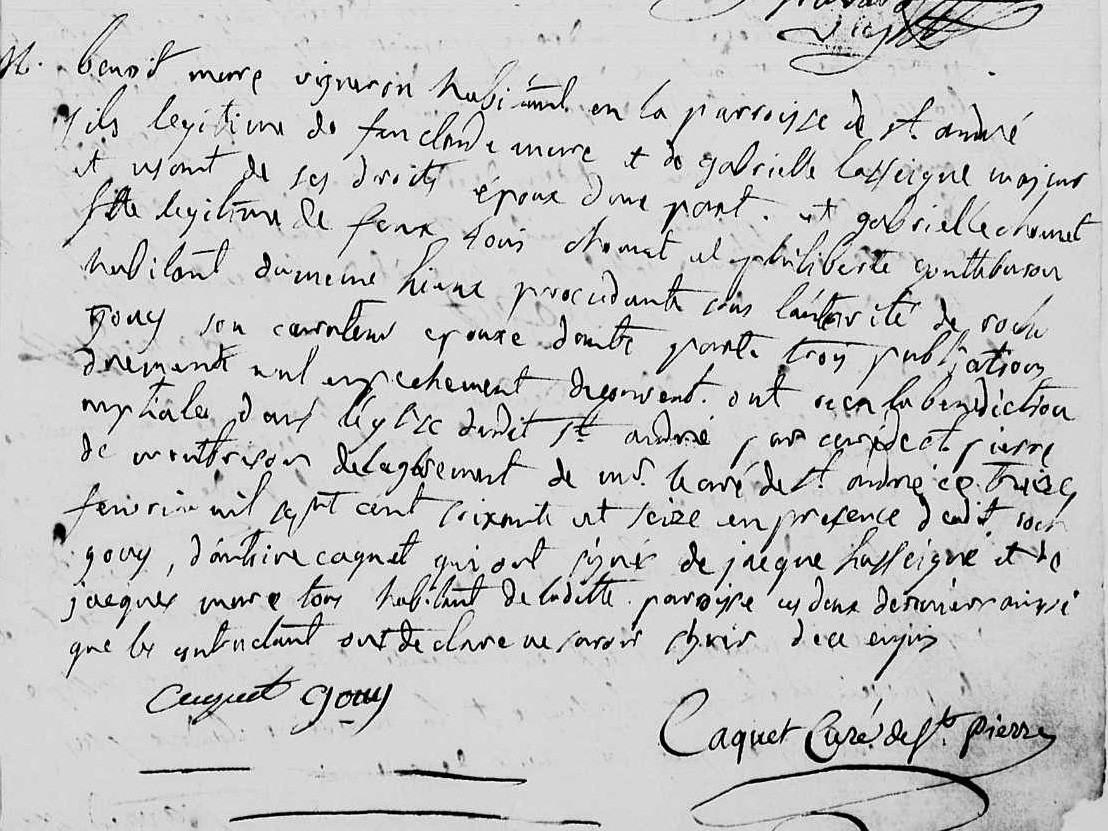 M. benoit mure vigneron habitant en la parroisse de st. andré
fils legitime de feu claude mure et de gabrielle lasseigne majeur
et usant de ses droits époux d'une part. et gabrielle chomet
fille legitime de feux louis chomet et philiberte
habitant du meme lieux procedante sous l'autorité de roch
gouy son curateur epouze d'autre part. trois publications
nul enpechement decouvert. ont recu la benediction
nuptiales dans léglise dudit st andré par curé de st pierre
de montbrison de lagrement de mr. le curé de st andré ce treize
fevrier mil sept cent soixante et seize en presence dudit roch
gouy, d'antoine caquet qui ont signés de jacque lasseigne et de
jacques mure tous habitant de laditte parroisse ces deux derniers ainsi
que les contractant ont declare ne savoir signer de ce enquis
caquet gouy
Caquet Curé de st. pierre